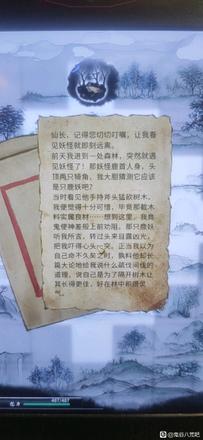 仙长，记得您切切叮嘱，让我看
见妖怪就即刻远离。
前天我进到一处森林，突然就遇
见妖怪了！那妖怪鹿首人身，头
顶两只犄角，我大胆猜测它应该
是只鹿妖吧？
当时看见他手持斧头猛砍树木，
我便觉得十分可惜，毕竟那截木
料实属良材……想到这里，我竟
鬼使神差般上前劝阻，那只鹿妖
听我所言，转过头来目露凶光，
把我吓得心头一突。正当我以为
自己命不久矣之时，孰料他却长
篇大论地给我说什么疏伐间伐的
道理，说自己是为了隔开树木让
其长得更佳，好在林中积攒灵
气。
487/487
@鬼谷八荒吧